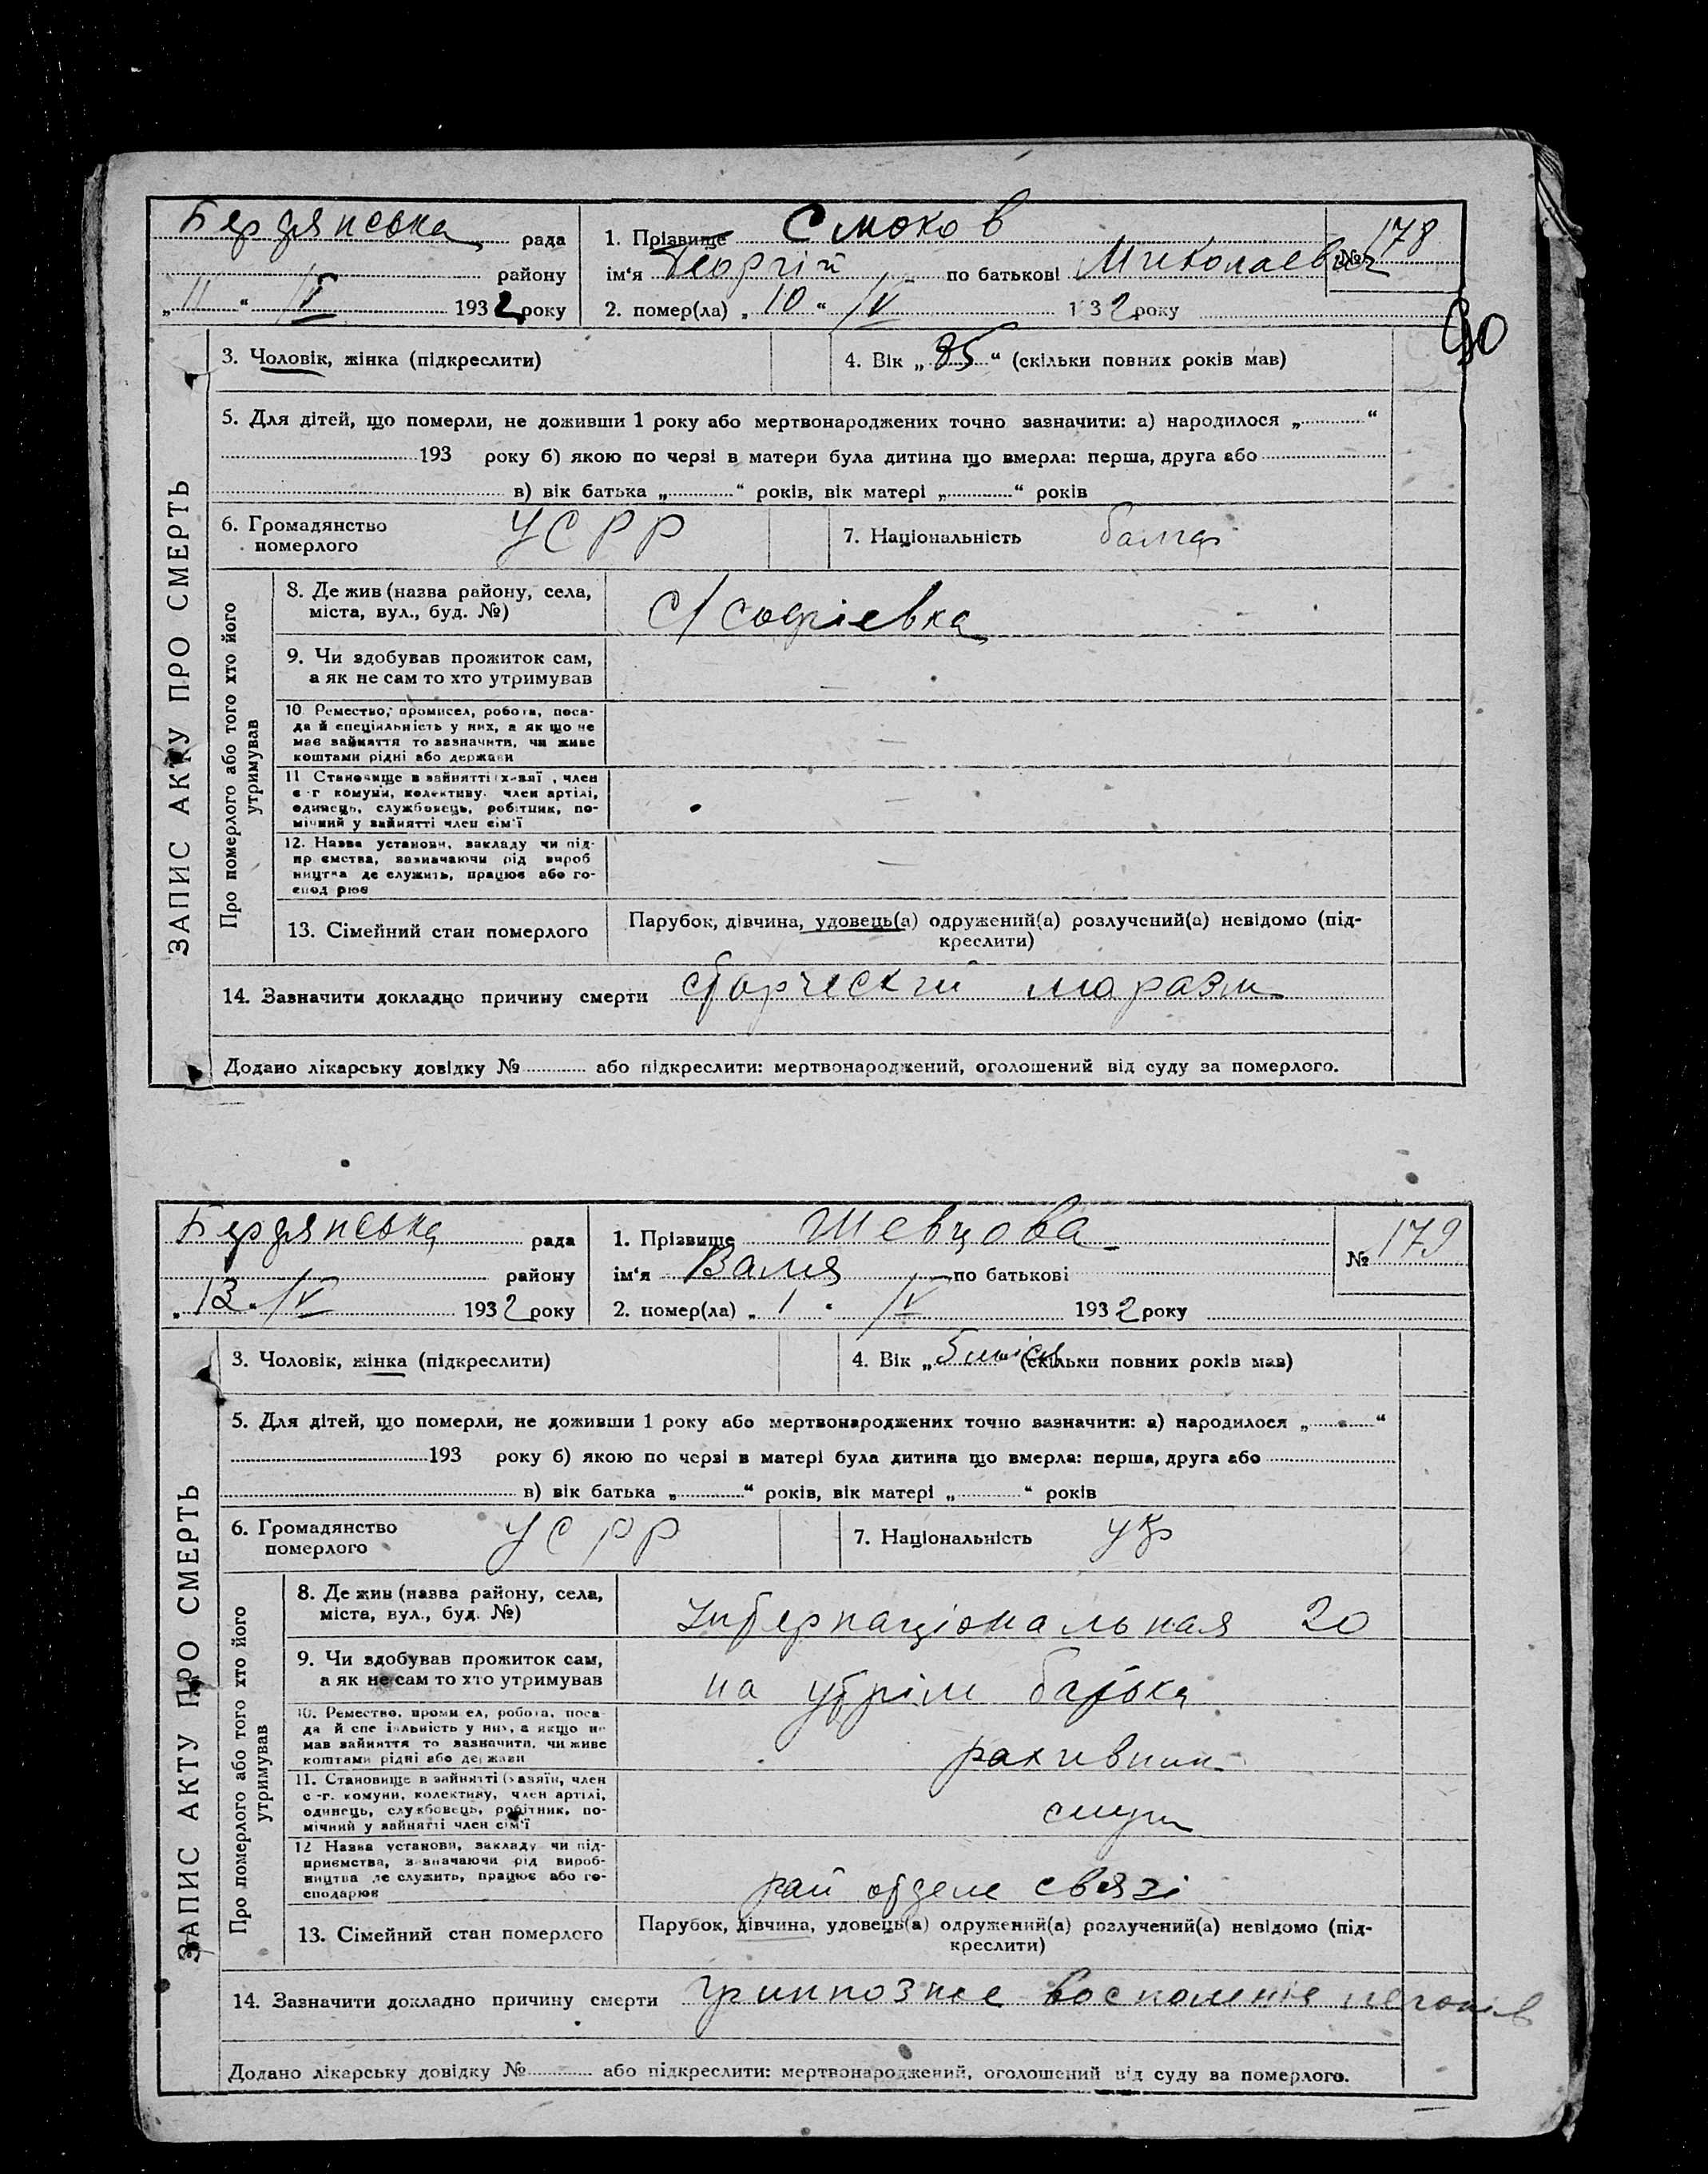 Бердянська рада
району
„11“ IV 1932 року
1. Прізвище Смоков
ім'я Георгій по батькові Миколаевич
№ 178
2. помер(ла) „10“ IV 1932 року
90
3. Чоловік, жінка (підкреслити)
4. Вік „85“ (скільки повних років мав)
5. Для дітей, що померли, не доживши 1 року або мертвонароджених точно зазначити: а) народилося „ “
193 року б) якою по черзі в матери була дитина що вмерла: перша, друга або
в) вік батька „ “ років, вік матері „ “ років
6. Громадянство померлого УСРР
7. Національність болгар
ЗАПИС АКТУ ПРО СМЕРТЬ
Про померлого або того хто його утримував
8. Де жив (назва району, села,
міста, вул., буд. №)
С/ Софіевка
9. Чи здобував прожиток сам,
а як не сам то хто утримував
10. Ремество, промисел, робота, поса-
да й спеціяльність у них, а як що не
має зайняття то зазначити, чи живе
коштами рідні або держави
11 Становище в зайнятті , член
с-г комуни, колективу, член артілі,
одинець, службовець, робітник, по-
мічний у зайнятті член сім'ї
12. Назва установи, закладу чи під-
приємства, зазначаючи рід вироб
ництва де служить, працює або го-
сподарює
13. Сімейний стан померлого
Парубок, дівчина, удовець(а) одружений(а) розлучений(а) невідомо (під-
креслити)
14. Зазначити докладно причину смерти старческий маразм
Додано лікарську довідку № або підкреслити: мертвонароджений, оголошений від суду за померлого.
Бердянська рада
району
„13“ IV 1932 року
1. Прізвище Шевцова
ім'я Валя по батькові
№ 179
2. помер(ла) „1“ IV 1932 року
3. Чоловік, жінка (підкреслити)
4. Вік „5 міся“ (скільки повних років мав)
5. Для дітей, що померли, не доживши 1 року або мертвонароджених точно зазначити: а) народилося „ “
193 року б) якою по черзі в матері була дитина що вмерла: перша, друга або
в) вік батька „ “ років, вік матері „ “ років
6. Громадянство померлого УСРР
7. Національність укр
ЗАПИС АКТУ ПРО СМЕРТЬ
Про померлого або того хто його утримував
8. Де жив (назва району, села,
міста, вул., буд. №)
Интернаціональная 20
9. Чи здобував прожиток сам,
а як не сам то хто утримував
на утрім батька
10. Ремество, промисел, робота, поса-
да й спеціяльність у них, а якщо не
мав зайняття то зазначити, чи живе
коштами рідні або держави
рахивник
11. Становище в зайнятті (хазяїн, член
с-г. комуни, колективу, член артілі,
одинець, службовець, робітник, по-
мічний у зайнятті член сім'ї
служ
12 Назва установи, закладу чи під-
приємства, зазначаючи рід вироб-
ництва де служить, працює або го-
сподарює
рай отдел связі
13. Сімейний стан померлого
Парубок, дівчина, удовець(а) одружений(а) розлучений(а) невідомо (під-
креслити)
14. Зазначити докладно причину смерти гриппозное воспаленіе легких
Додано лікарську довідку № або підкреслити: мертвонароджений, оголошений від суду за померлого.